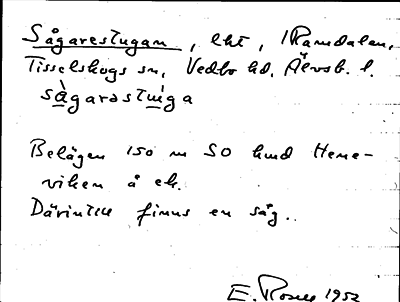 Sågarestugan, lht, i Ramdalen,
Tisselskogs sn, Vedbo hd, Älvsb. l.
sågarastuga
Belägen 150 m SO hmd Heme-
viken å ek.
Därintill finns en såg.
E. Rosell 1952